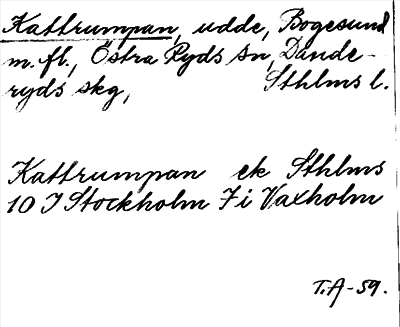 Kattrumpan, udde, Bogesund
m. fl., Östra Ryds sn, Dande-
ryds skg, Sthlms l.
Kattrumpan ek Sthlms
10 I Stockholm 7 i Vaxholm
T.A-59.